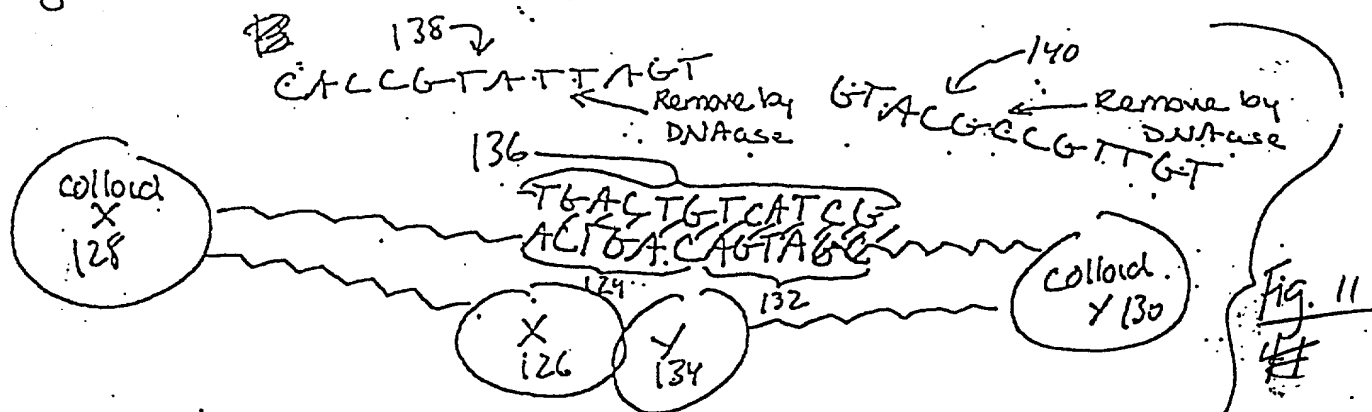 138
CACCGTATTAGT
Remove by
DNAase
140
GTACGCCGTTGT
Remove by
DNAase
136
TGACTGTCATCG
ACTGACAGTAGC
124
132
colloid
X
128
colloid
Y 130
X
126
Y
134
Fig. 11